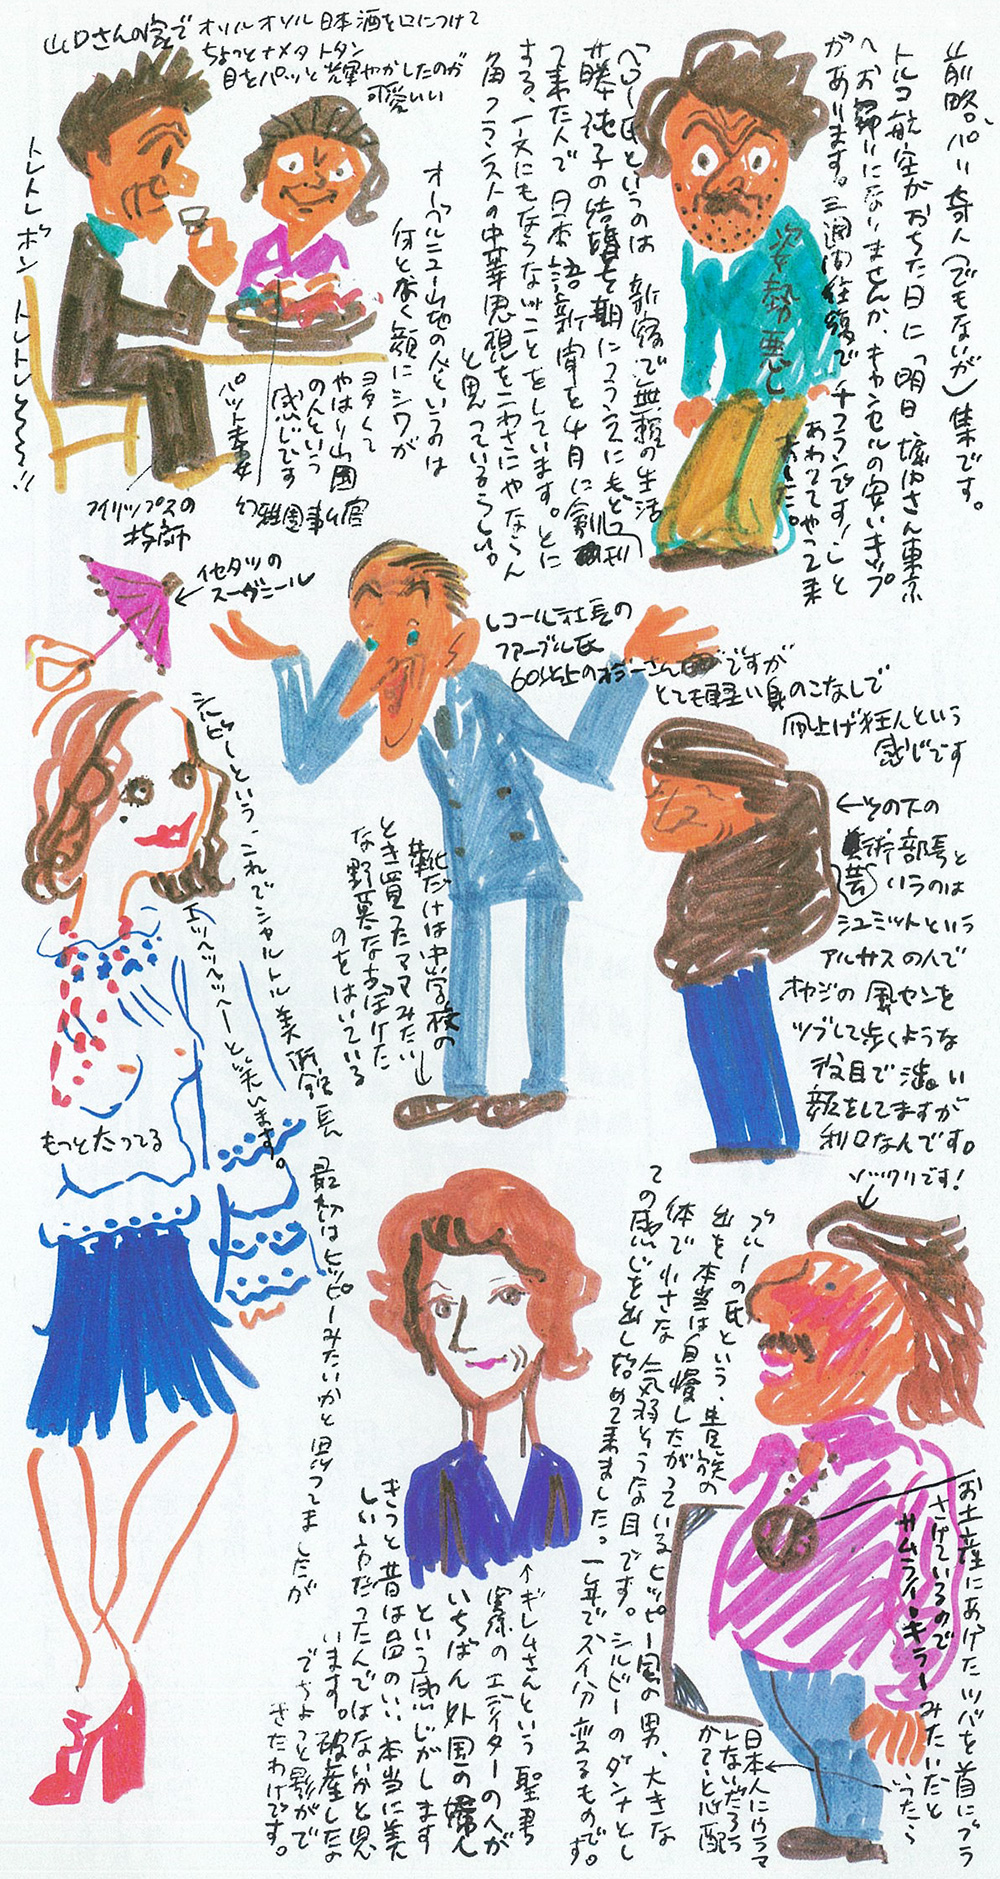 前略。パリ奇人(でもないが)集です。
トルコ航空がおちた日に「明日堀内さん東京
へお帰りになりませんか、キャンセルの安いきっぷ
があります。三週間往復で千フランです!」と
あわててやって来
ました。
姿勢悪し
「ヘロー氏というのは新宿で無頼の生活
藤純子の結婚を期にフランスにもどっ
て来た人で日本語新聞を4月に創刊
する、一文にもならないことをしています。とに
角フランス人の中華思想をこわさにゃならん
と思っているらしい。
山口さんの家でオソルオソル日本酒を口につけて
ちょっとナメタトタン
目をパッと輝やかしたのが
可愛いい
オーベルニュー山地の人というのは
何と本く顔にシワが
ヨタくて
やはり山国
の人という
感じです
パット夫女
フィリップスの
技師
トレトレボン トレトレ〜〜〜!!
イセタツの
スーヴニール
レコール社長の
ファーブル氏
60以上のオジーさんですが
とても軽い身のこなしで
凧上げ狂人という
感じです
靴だけは中学校の
とき買ったママみたい
な野暮なおぼけた
のをはいている
←その下の
芸術部長と
いうのは
シュミットという
アルサスの人で
オヤジの風センを
ツブして歩くような
役目で渋い
顔をしてますが
利口なんです。
ソックリです!
シルビーという、これでシャルトル美術館長
エッヘヘヘヘーと笑います。
もっと太ってる
最初はヒッピーみたいかと思ってましたが
ブルーの氏という、貴族の
出を本当は自慢したがっているヒッピー風の男、大きな
体で小さな気弱そうな目です。シルビーのダンナとし
ての感じを出し始めて来ました。一年でズイ分変るものです。
↑ギレムさんという聖書
関係のエディターの人が
いちばん外国の婦人
という感じがします
きっと昔は品のいい本当に美
しい方だったんではないかと思
います。破産したな
でちょっと影がで
きたわけです。
お土産にあげたツバを首にブラ
さげているので
サムライ・キラーみたいだと
いったら
日本人にウラマ
しないだろう
かと心配